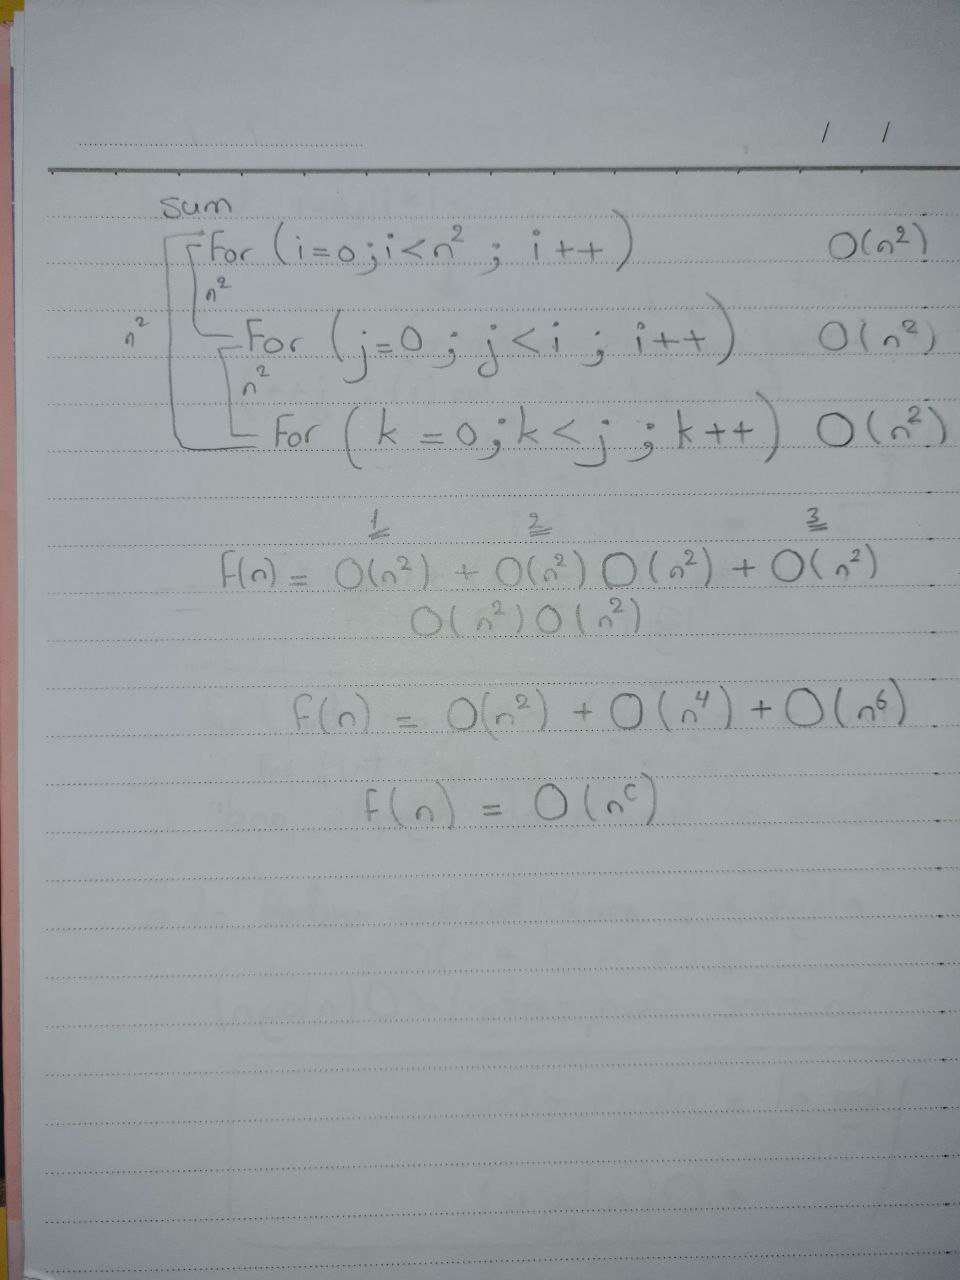 / /
sum
For (i=0;i<n² ; i++) O(n²)
n²
n²
For (j=0 ; j<i ; i++) O(n²)
n²
For (k=0;k<j ; k++) O(n²)
1 2 3
f(n) = O(n²) + O(n²) O(n²) + O(n²)
O(n²) O(n²)
f(n) = O(n²) + O(n⁴) + O(n⁶)
f(n) = O(nᶜ)